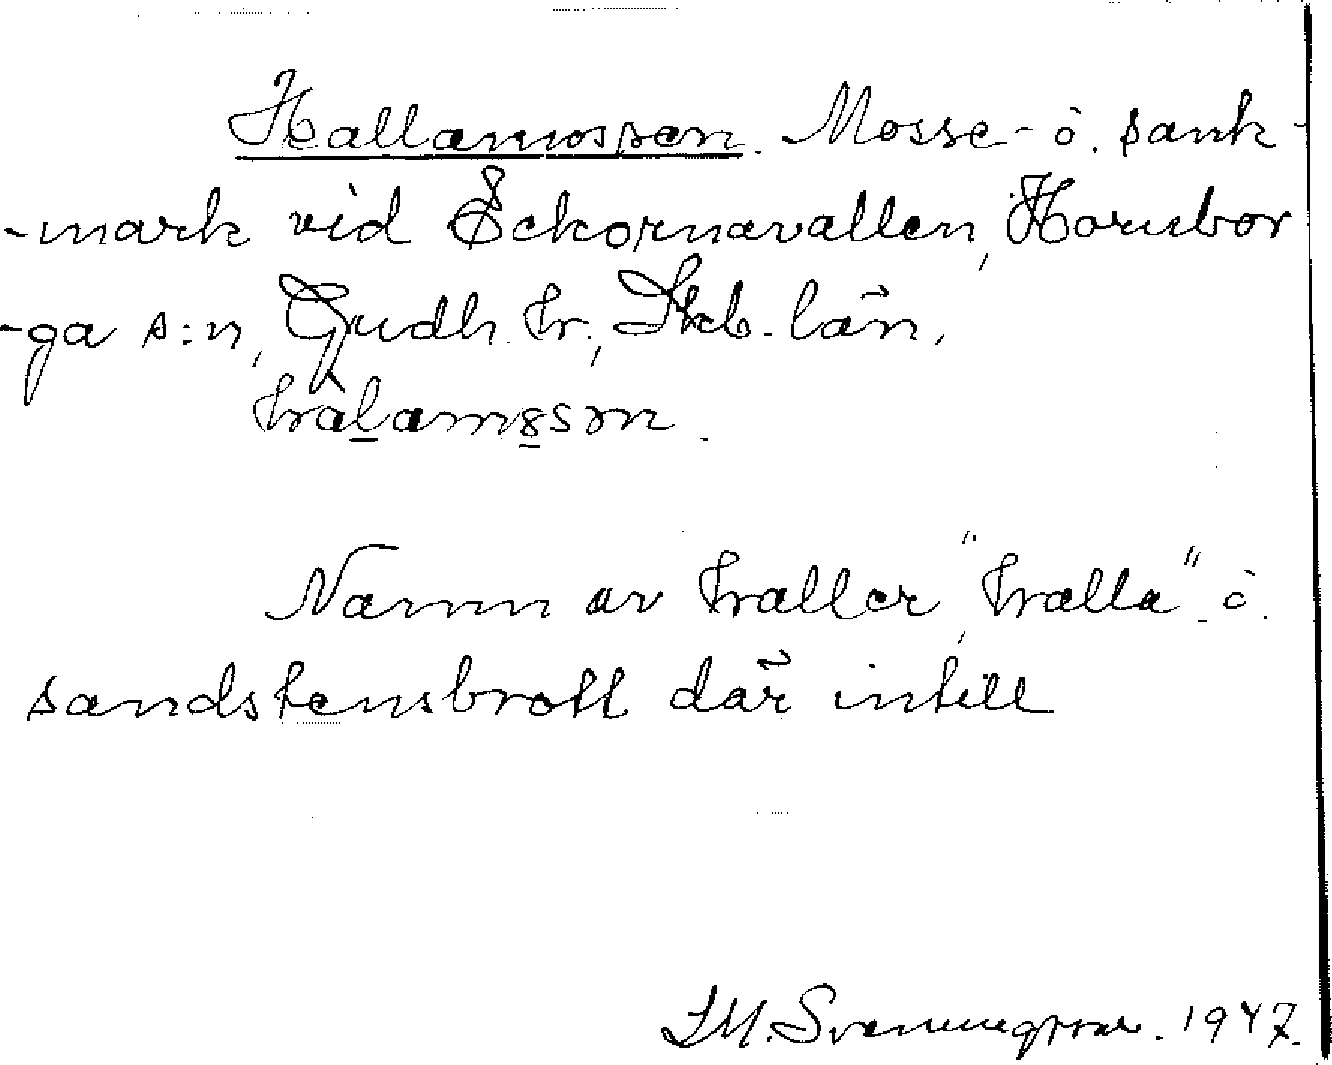 Hallamossen. Mosse- o. sank-
-mark vid Ekornavallen, Hornbor
-ga s:n, Gudh. hr., Skb. län.
halamssn.
Namn av haller, "halla" o.
sandstensbrott där intill
I M. Svenungsson. 1947.